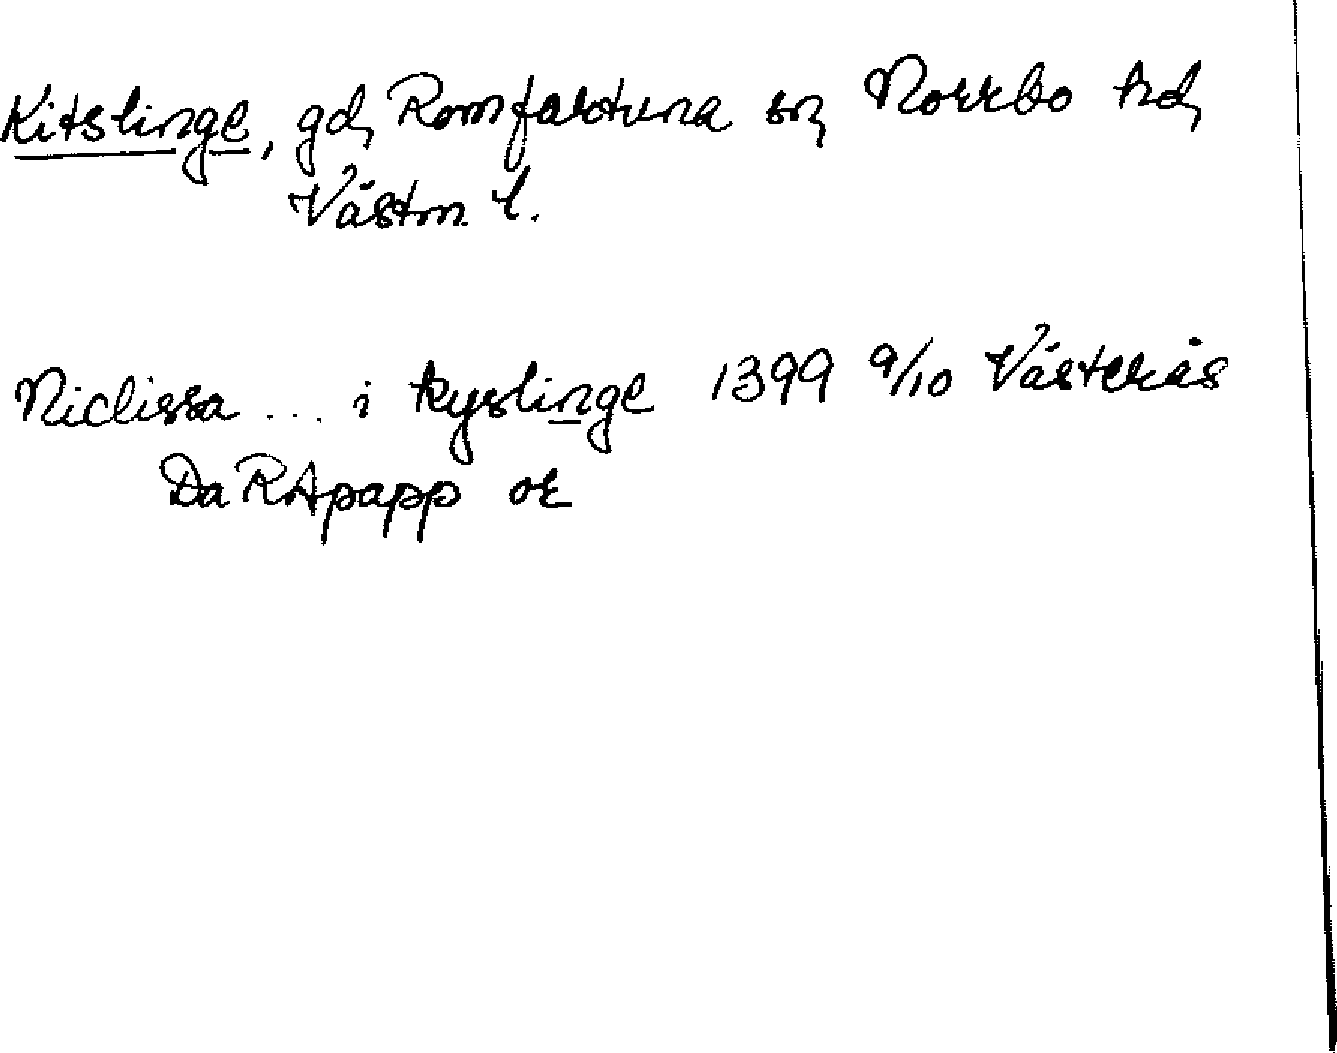 Kitslinge, gd, Romfartuna sn, Norrbo hd,
Västm l.
Niclissa ... i kyslinge 1399 9/10 Västerås
Da RApapp or